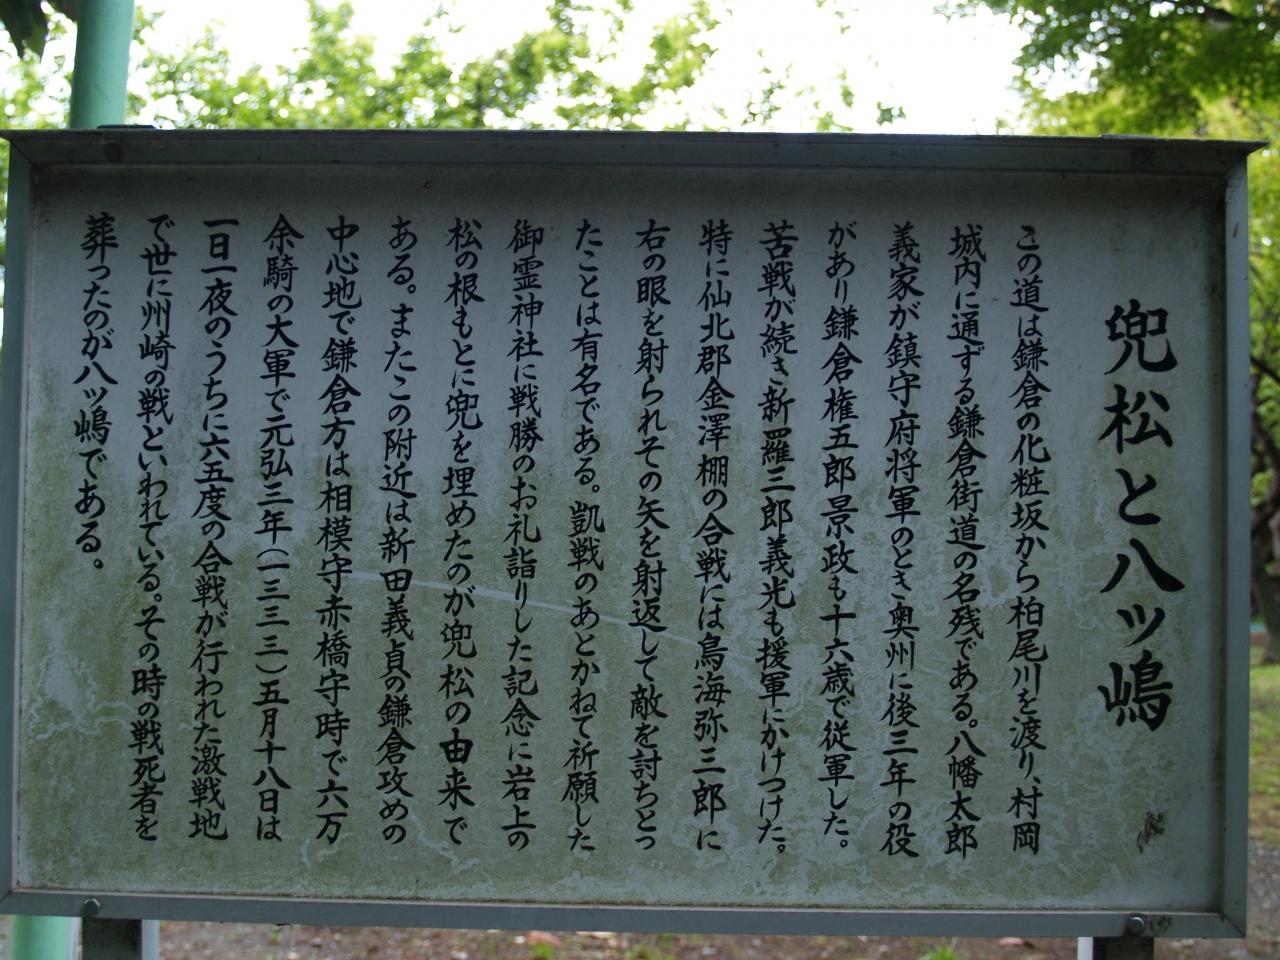 兜松と八ッ嶋
この道は鎌倉の化粧坂から柏尾川を渡り、村岡
城内に通ずる鎌倉街道の名残である。八幡太郎
義家が鎮守府将軍のとき奥州に後三年の役
があり鎌倉権五郎景政も十六歳で従軍した。
苦戦が続き新羅三郎義光も援軍にかけつけた。
特に仙北郡金澤棚の合戦には鳥海弥三郎に
右の眼を射られその矢を射返して敵を討ちとっ
たことは有名である。凱戦のあとかねて祈願した
御霊神社に戦勝のお礼詣りした記念に岩上の
松の根もとに兜を埋めたのが兜松の由来で
ある。またこの附近は新田義貞の鎌倉攻めの
中心地で鎌倉方は相模守赤橋守時で六万
余騎の大軍で元弘三年(一三三三)五月十八日は
一日一夜のうちに六五度の合戦が行われた激戦地
で世に州崎の戦といわれている。その時の戦死者を
葬ったのが八ッ嶋である。